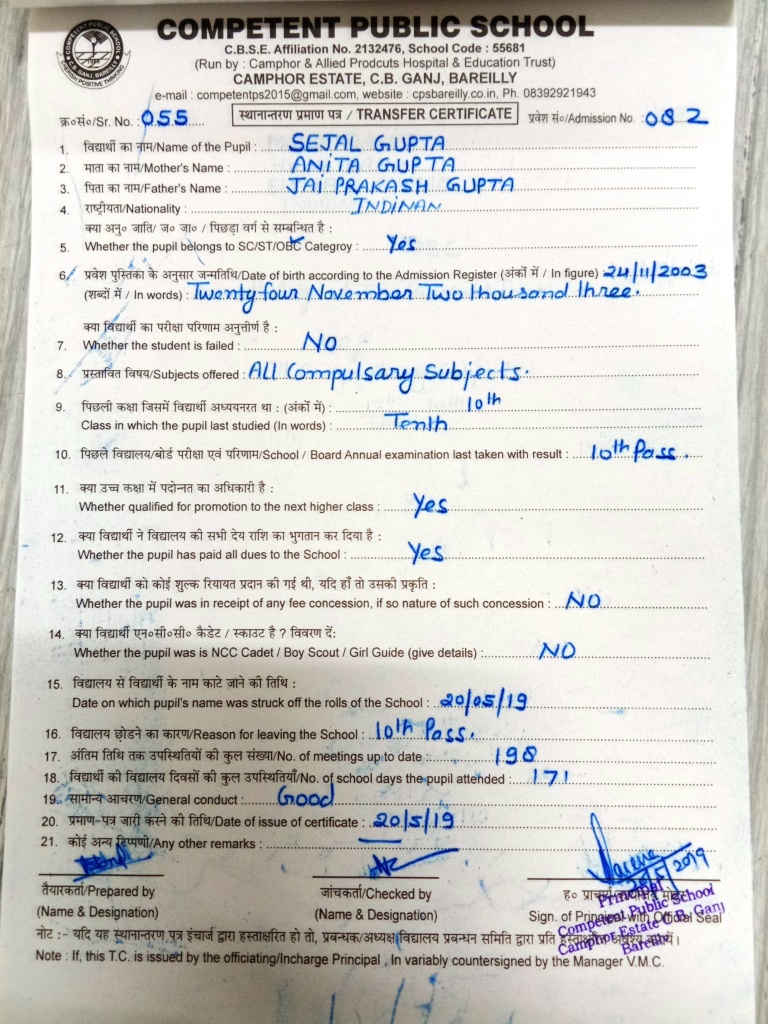 COMPETENT PUBLIC SCHOOL
C.B.S.E. Affiliation No. 2132476, School Code : 55681
(Run by : Camphor & Allied Prodcuts Hospital & Education Trust)
CAMPHOR ESTATE, C.B. GANJ, BAREILLY
e-mail : competentps2015@gmail.com, website : cpsbareilly.co.in, Ph. 08392921943
क्र०सं०/Sr. No. : 055 स्थानान्तरण प्रमाण पत्र / TRANSFER CERTIFICATE प्रवेश सं०/Admission No. : 082
1. विद्यार्थी का नाम/Name of the Pupil : SEJAL GUPTA
2. माता का नाम/Mother's Name : ANITA GUPTA
3. पिता का नाम/Father's Name : JAI PRAKASH GUPTA
4. राष्ट्रीयता/Nationality : INDINAN
क्या अनु० जाति/ ज० जा० / पिछड़ा वर्ग से सम्बन्धित है :
5. Whether the pupil belongs to SC/ST/OBC Categroy : Yes
6. प्रवेश पुस्तिका के अनुसार जन्मतिथि/Date of birth according to the Admission Register (अंकों में / In figure) 24/11/2003
(शब्दों में / In words) : Twenty four November Two thousand three.
क्या विद्यार्थी का परीक्षा परिणाम अनुत्तीर्ण है :
7. Whether the student is failed : NO
8. प्रस्तावित विषय/Subjects offered : All Compulsary Subjects.
9. पिछली कक्षा जिसमें विद्यार्थी अध्ययनरत था : (अंकों में) : 10th
Class in which the pupil last studied (In words) : Tenth
10. पिछले विद्यालय/बोर्ड परीक्षा एवं परिणाम/School / Board Annual examination last taken with result : 10th Pass.
11. क्या उच्च कक्षा में पदोन्नत का अधिकारी है :
Whether qualified for promotion to the next higher class : Yes
12. क्या विद्यार्थी ने विद्यालय की सभी देय राशि का भुगतान कर दिया है :
Whether the pupil has paid all dues to the School : Yes
13. क्या विद्यार्थी को कोई शुल्क रियायत प्रदान की गई थी, यदि हाँ तो उसकी प्रकृति :
Whether the pupil was in receipt of any fee concession, if so nature of such concession : NO
14. क्या विद्यार्थी एन०सी०सी० कैडेट / स्काउट है ? विवरण दें:
Whether the pupil was is NCC Cadet / Boy Scout / Girl Guide (give details) : NO
15. विद्यालय से विद्यार्थी के नाम काटे जाने की तिथि :
Date on which pupil's name was struck off the rolls of the School : 20/05/19
16. विद्यालय छोडने का कारण/Reason for leaving the School : 10th Pass.
17. अंतिम तिथि तक उपस्थितियों की कुल संख्या/No. of meetings up to date : 198
18. विद्यार्थी की विद्यालय दिवसों की कुल उपस्थितियाँ/No. of school days the pupil attended : 171
19. सामान्य आचरण/General conduct : Good
20. प्रमाण-पत्र जारी करने की तिथि/Date of issue of certificate : 20/5/19
21. कोई अन्य टिप्पणी/Any other remarks :
20/5/2019
तैयारकर्ता/Prepared by जांचकर्ता/Checked by ह० प्राचार्य
(Name & Designation) (Name & Designation) Sign. of Principal with Official Seal
Principal
Competent Public School
Camphor Estate C.B. Ganj
Bareilly
नोट :- यदि यह स्थानान्तरण पत्र इंचार्ज द्वारा हस्ताक्षरित हो तो, प्रबन्धक/अध्यक्ष विद्यालय प्रबन्धन समिति द्वारा प्रति
Note : If, this T.C. is issued by the officiating/Incharge Principal , In variably countersigned by the Manager V.M.C.